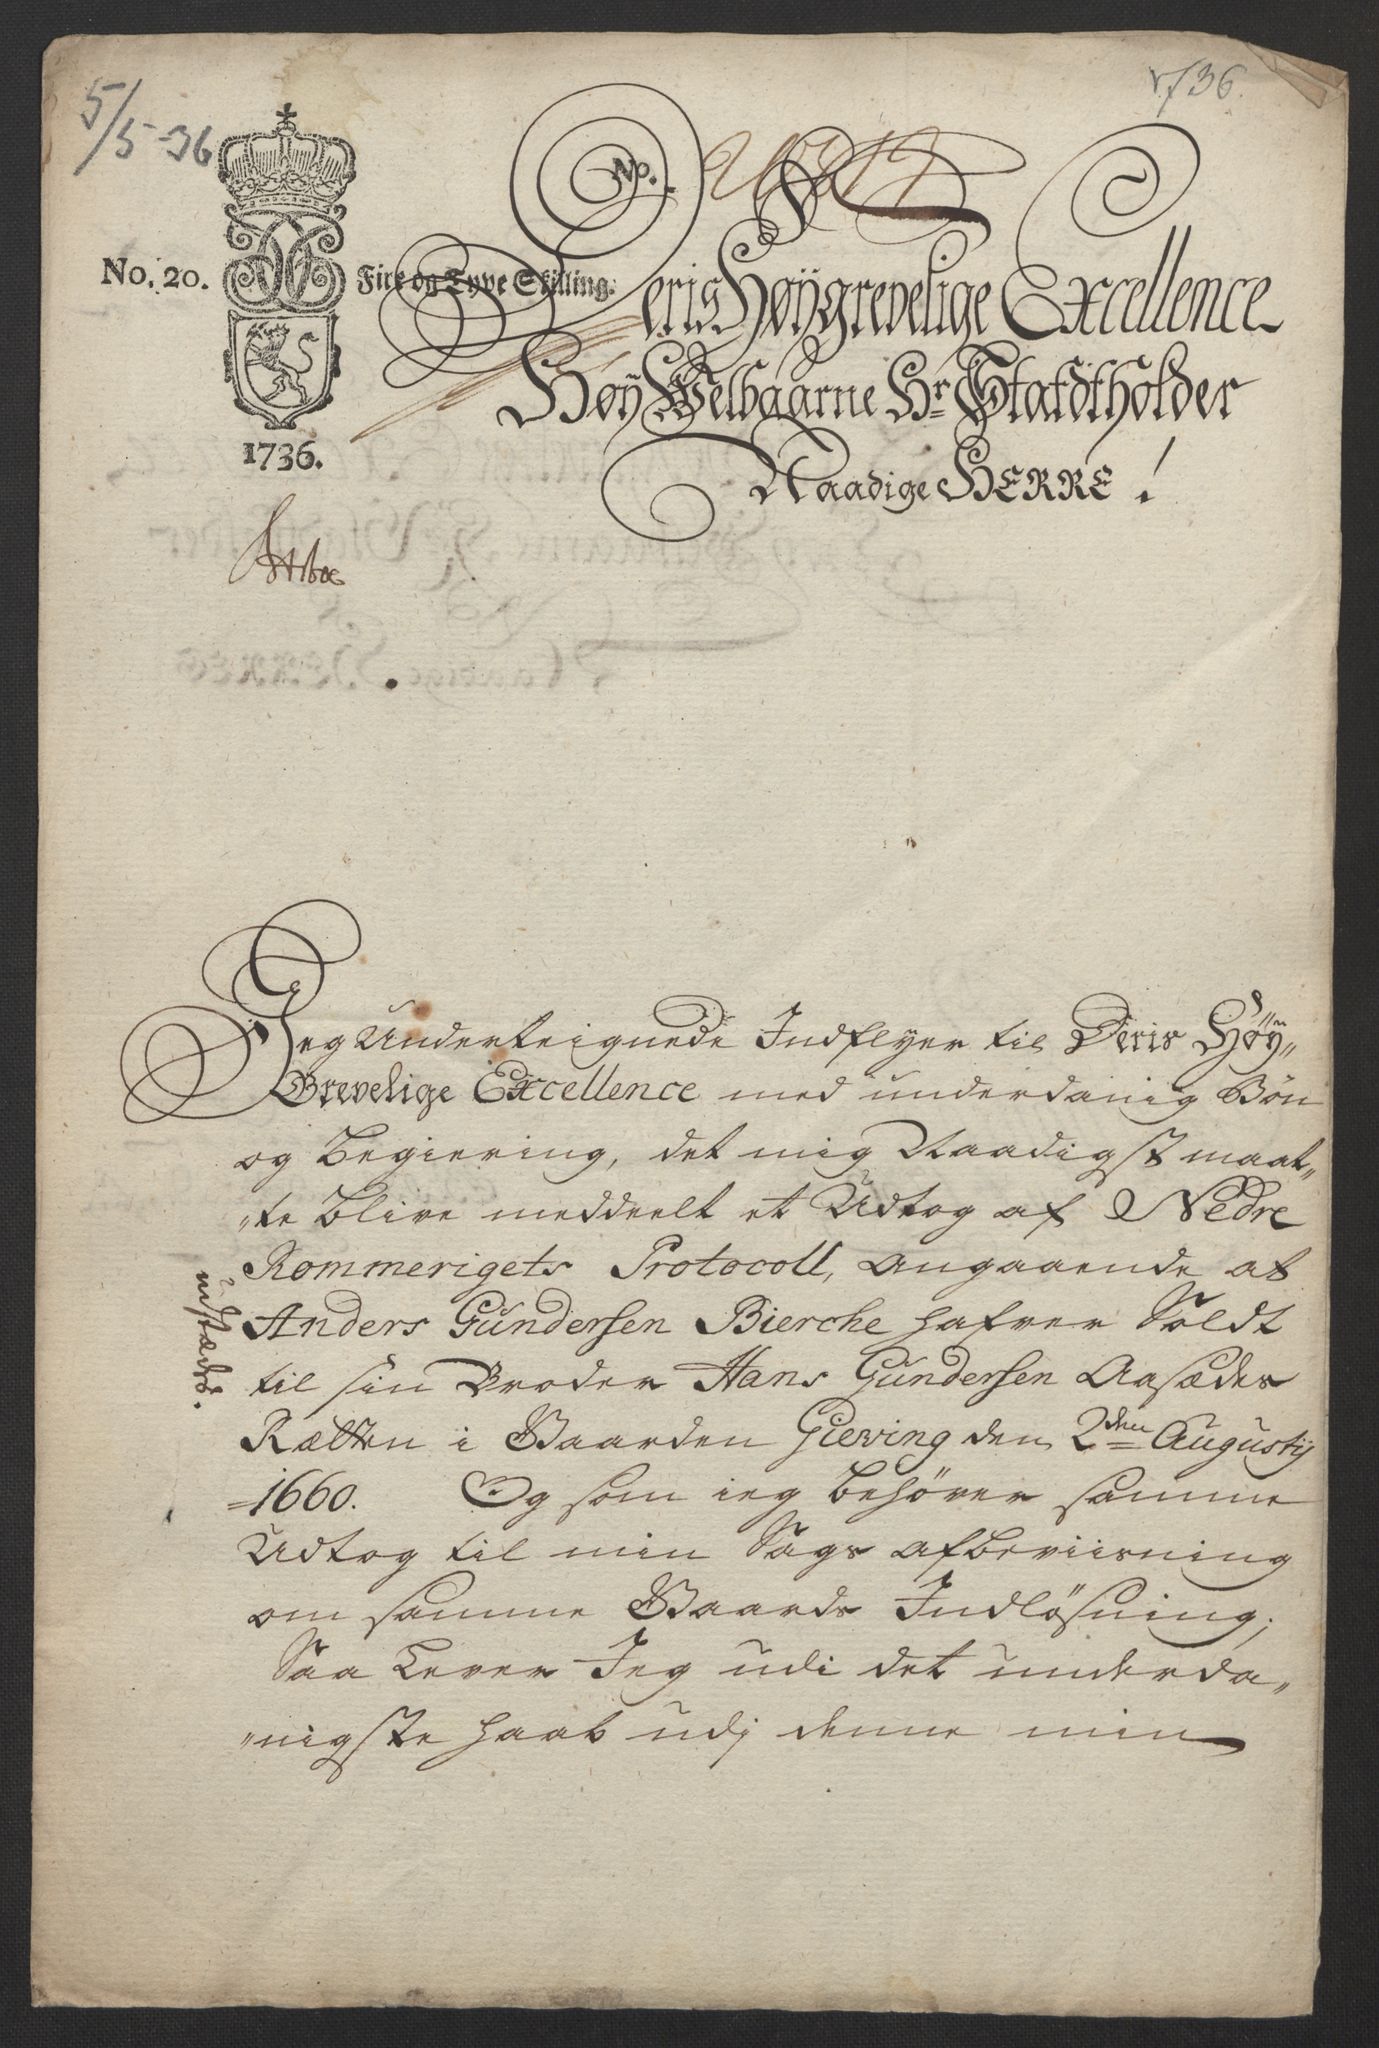 5/5-36
1736.
No. 20. Fire og Tyve Skilling.
No.
1736.
Deris Høÿgrevelige Excellence
Høÿ Welbaarne Hr Statdtholder
Naadige HERRE!
Jeg Underteignede Indflyer til Deris Høÿ„
Grevelige Excellence med underdanig Bøn
og Begiering, det mig Naadigst maat„
„te blive meddeelt et Udtog af Nedre
Rommerigets Protocoll, angaaende at
Anders Gundersen Bierche hafver Soldt
til sin Broder Hans Gundersen Aasædes
Retten i Gaarden Gieving den 2den Augustij
1660. Og som ieg behøver samme
Udtog til min Sags afbeviisning
om samme Gaards Indløsning;
Saa Lever Jeg udi det underda„
„nigste haab udj denne min
udstædt.